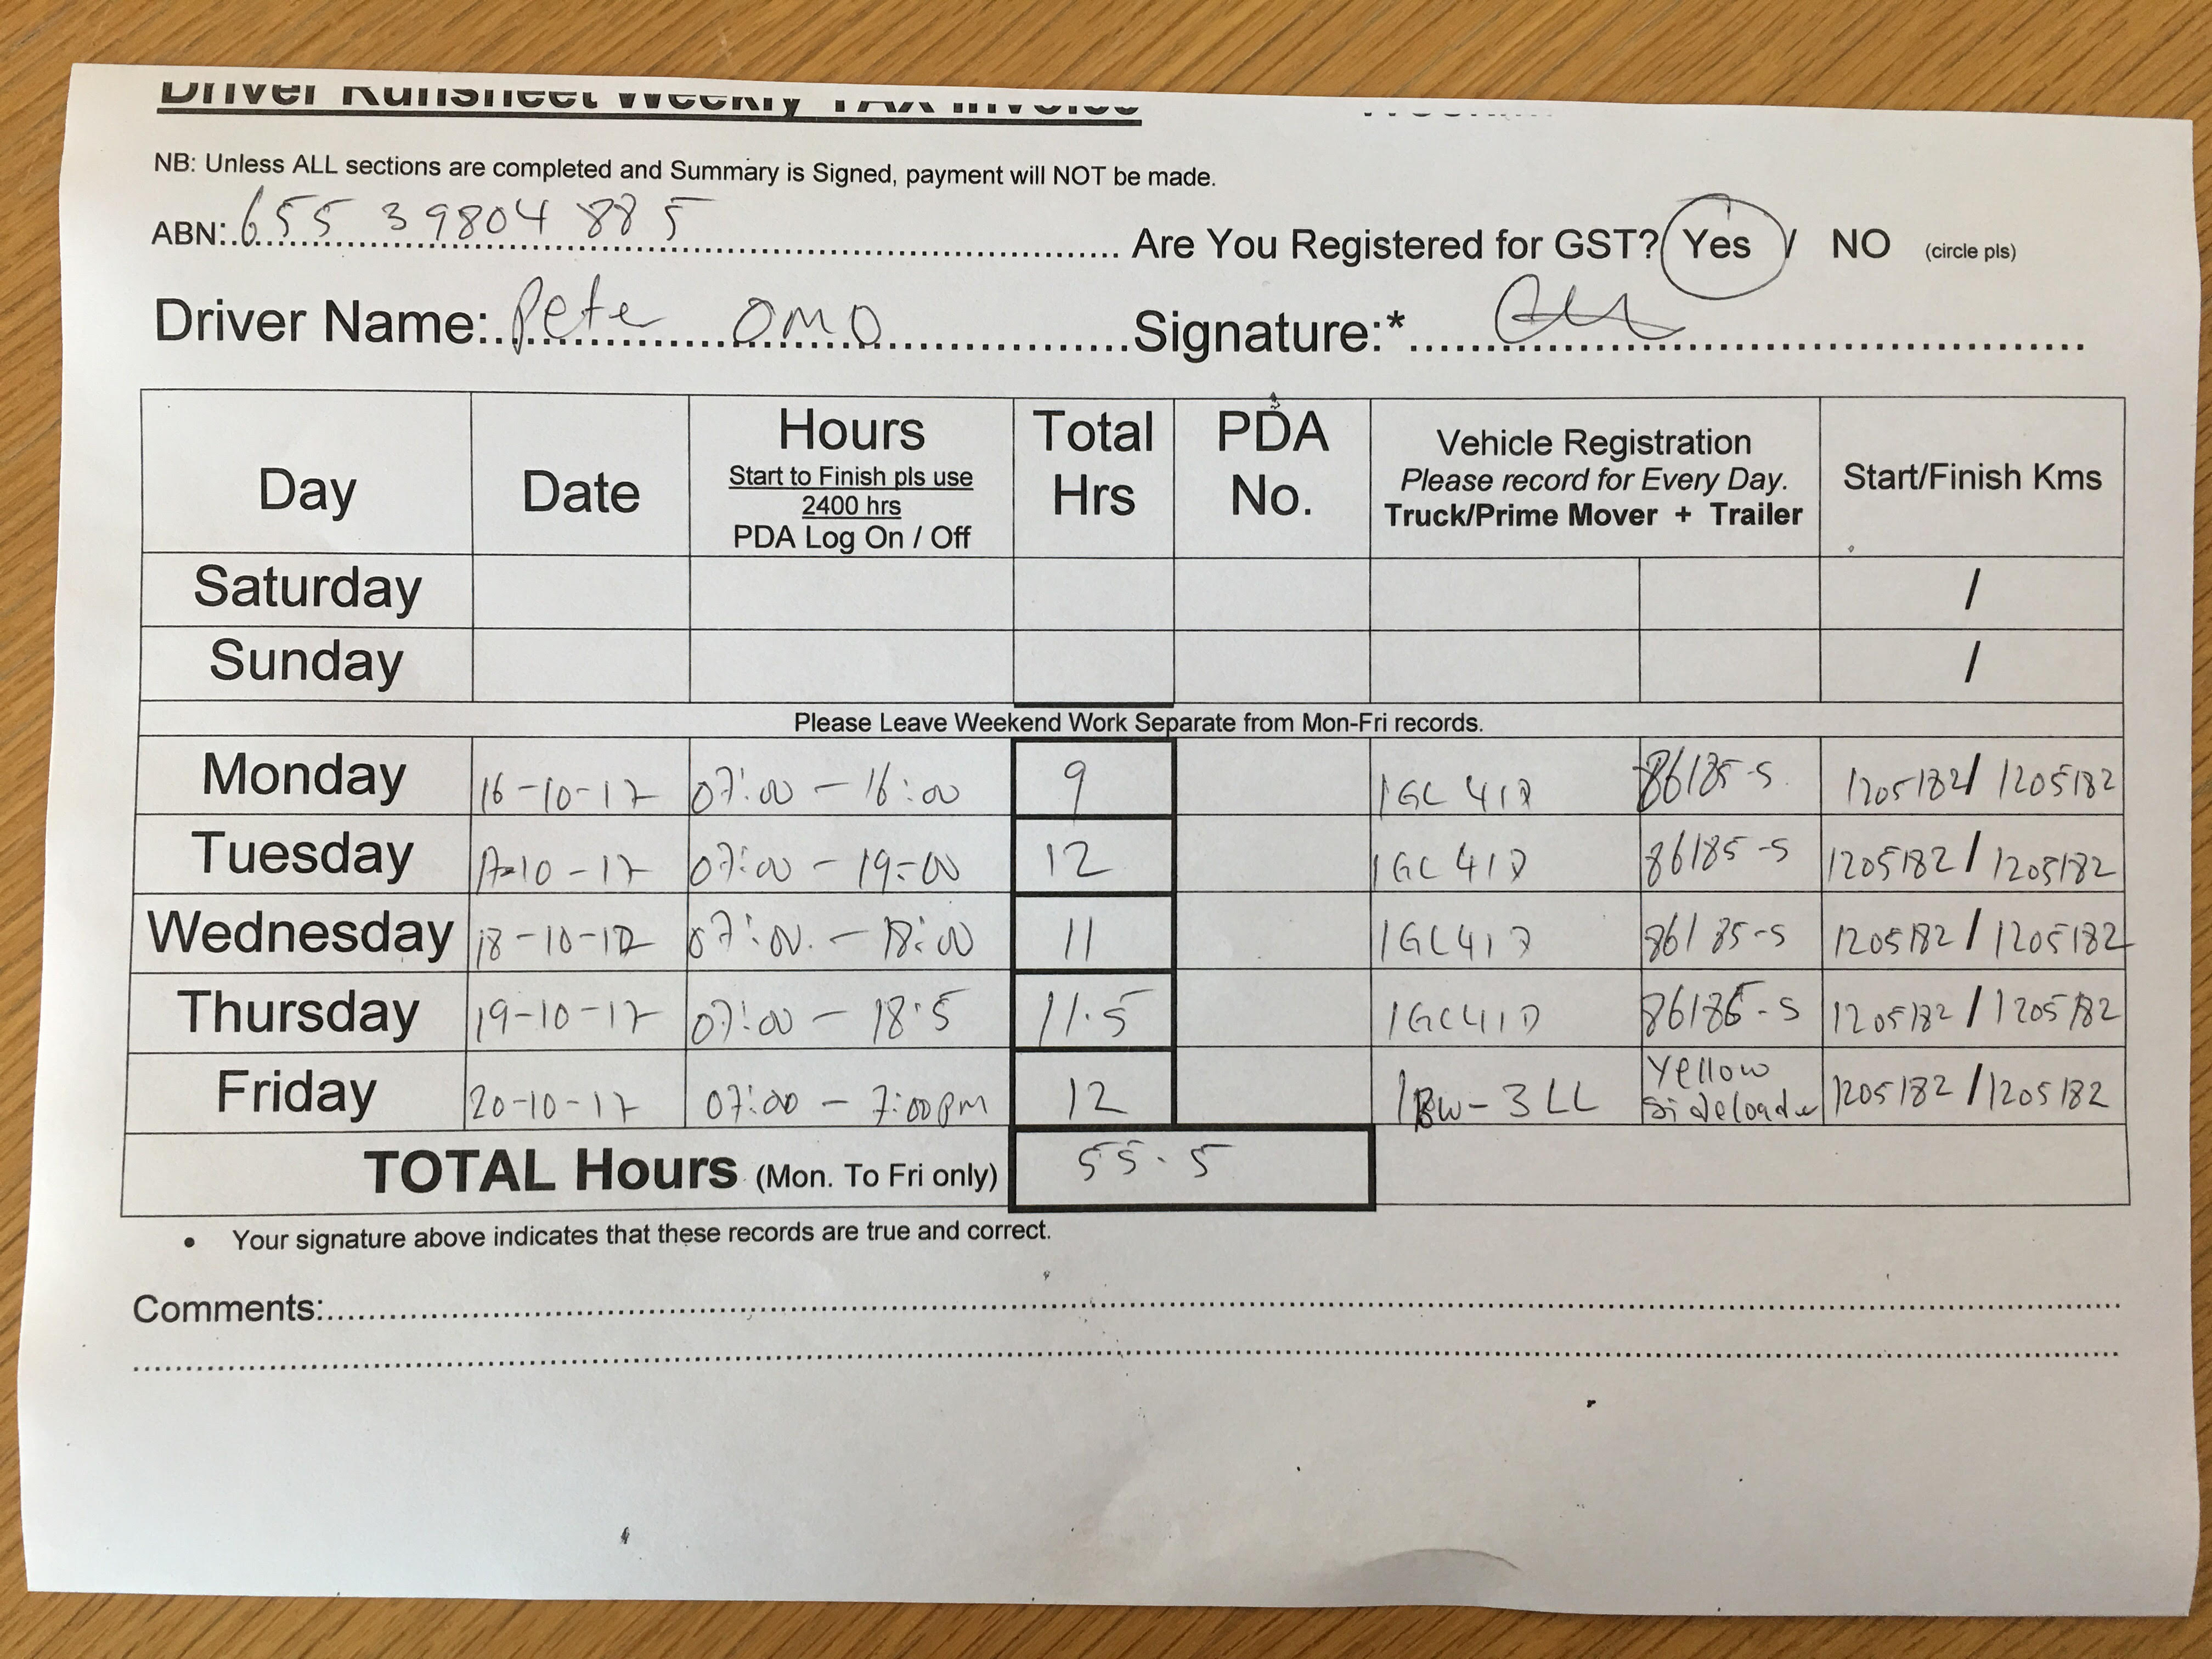 Driver Runsheet Weekly TAX Invoice
NB: Unless ALL sections are completed and Summary is Signed, payment will NOT be made.
ABN: 655 39804 885 Are You Registered for GST? Yes / NO (circle pls)
Driver Name: Pete OMO Signature:*
Day Date Hours Start to Finish pls use 2400 hrs PDA Log On / Off Total Hrs PDA No. Vehicle Registration Please record for Every Day. Truck/Prime Mover + Trailer Start/Finish Kms
Saturday /
Sunday /
Please Leave Weekend Work Separate from Mon-Fri records.
Monday 16-10-17 07:00 - 16:00 9 86185-S 1205182/ 1205182
Tuesday 17-10-17 07:00 - 19-00 12 86185-S 1205182 / 1205182
Wednesday 18-10-17 07:00. - 18:00 11 86185-S 1205182 / 1205182
Thursday 19-10-17 07:00 - 18.5 11.5 1205182 / 1205182
Friday 20-10-17 07:00 - 7:00pm 12 1BW-3LL Yellow Sideloader 1205182 / 1205182
TOTAL Hours (Mon. To Fri only) 55.5
• Your signature above indicates that these records are true and correct.
Comments: